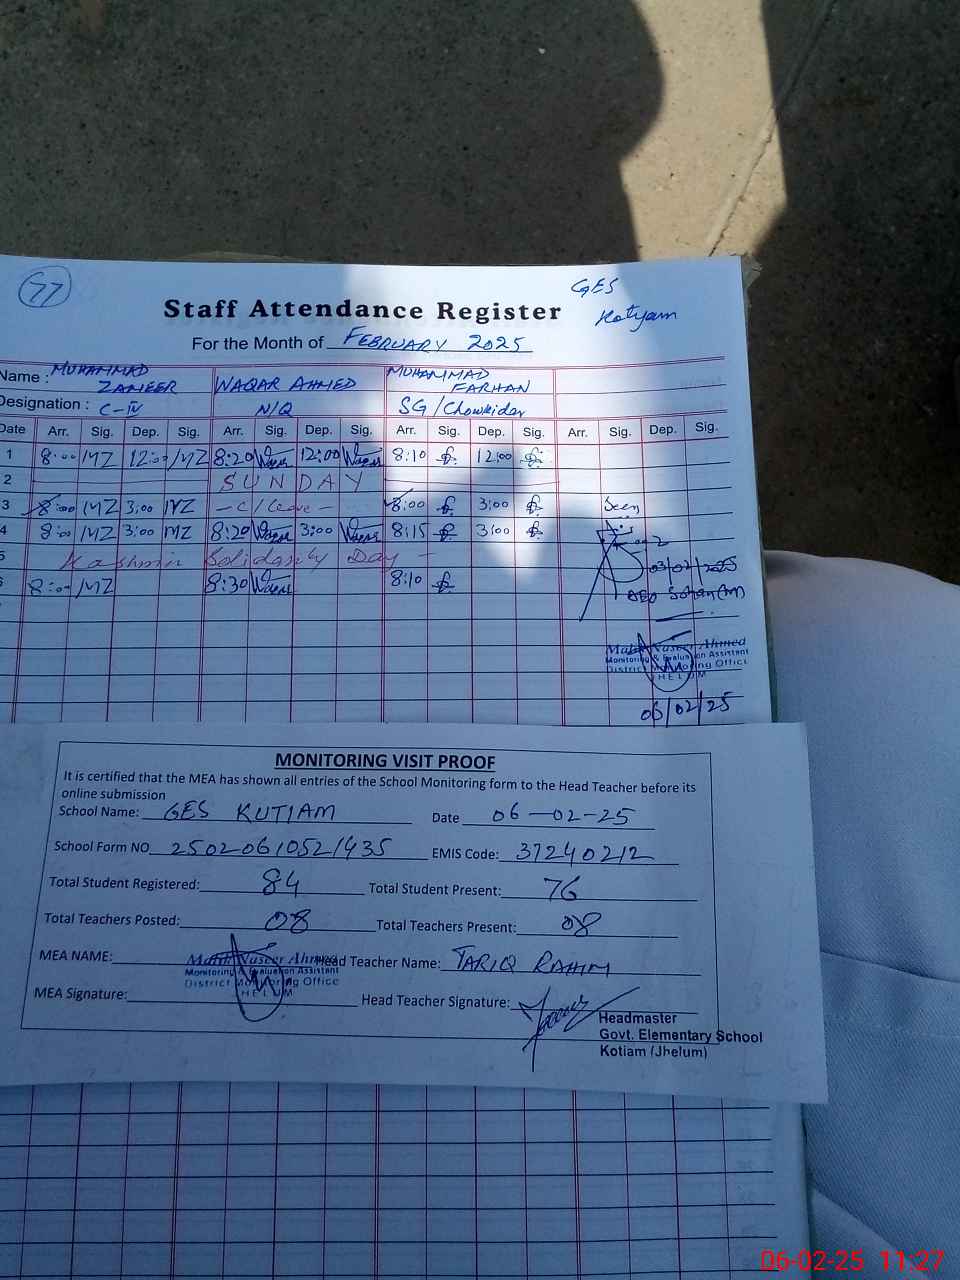 77
GES
Kotyam
Staff Attendance Register
For the Month of FEBRUARY 2025
Name : MUHAMMAD ZAMEER WAQAR AHMED MUHAMMAD FARHAN
Designation : C-IV N/Q SG/Chowkidar
Date Arr. Sig. Dep. Sig. Arr. Sig. Dep. Sig. Arr. Sig. Dep. Sig. Arr. Sig. Dep. Sig.
1 8:00 MZ 12:00 MZ 8:20 Waqar 12:00 Waqar 8:10 12:00
2 SUNDAY
3 8:00 MZ 3:00 MZ - C/Leave - 8:00 3:00 Seen
4 8:00 MZ 3:00 MZ 8:20 Waqar 3:00 Waqar 8:15 3:00
5 Kashmir Solidarity Day -
03/02/2025
6 8:00 MZ 8:30 Waqar 8:10
AEO Sohan (M)
Naseer Ahmed
Monitoring & Evaluation Assistant
District Monitoring Office
JHELUM
06/02/25
MONITORING VISIT PROOF
It is certified that the MEA has shown all entries of the School Monitoring form to the Head Teacher before its
online submission
School Name: GES KUTIAM Date 06-02-25
School Form NO 25020610521435 EMIS Code: 37240212
Total Student Registered: 84 Total Student Present: 76
Total Teachers Posted: 08 Total Teachers Present: 08
MEA NAME: Naseer Ahmed Head Teacher Name: TARIQ RAHIM
Monitoring & Evaluation Assistant
District Monitoring Office
JHELUM
MEA Signature: Head Teacher Signature:
Headmaster
Govt. Elementary School
Kotiam (Jhelum)
06-02-25 11:27